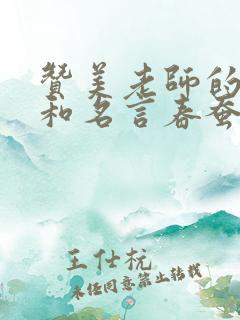 赞美老师的
和名言春蚕
王仕杬
未经同意禁止转载